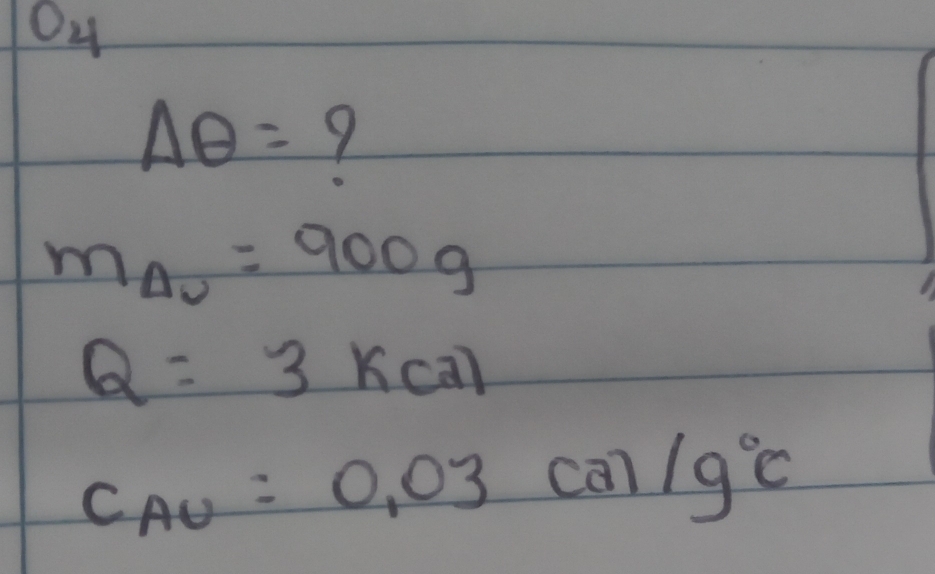 04
Δθ = ?
mAu = 900g
Q = 3 Kcal
CAU = 0,03 cal/g°c